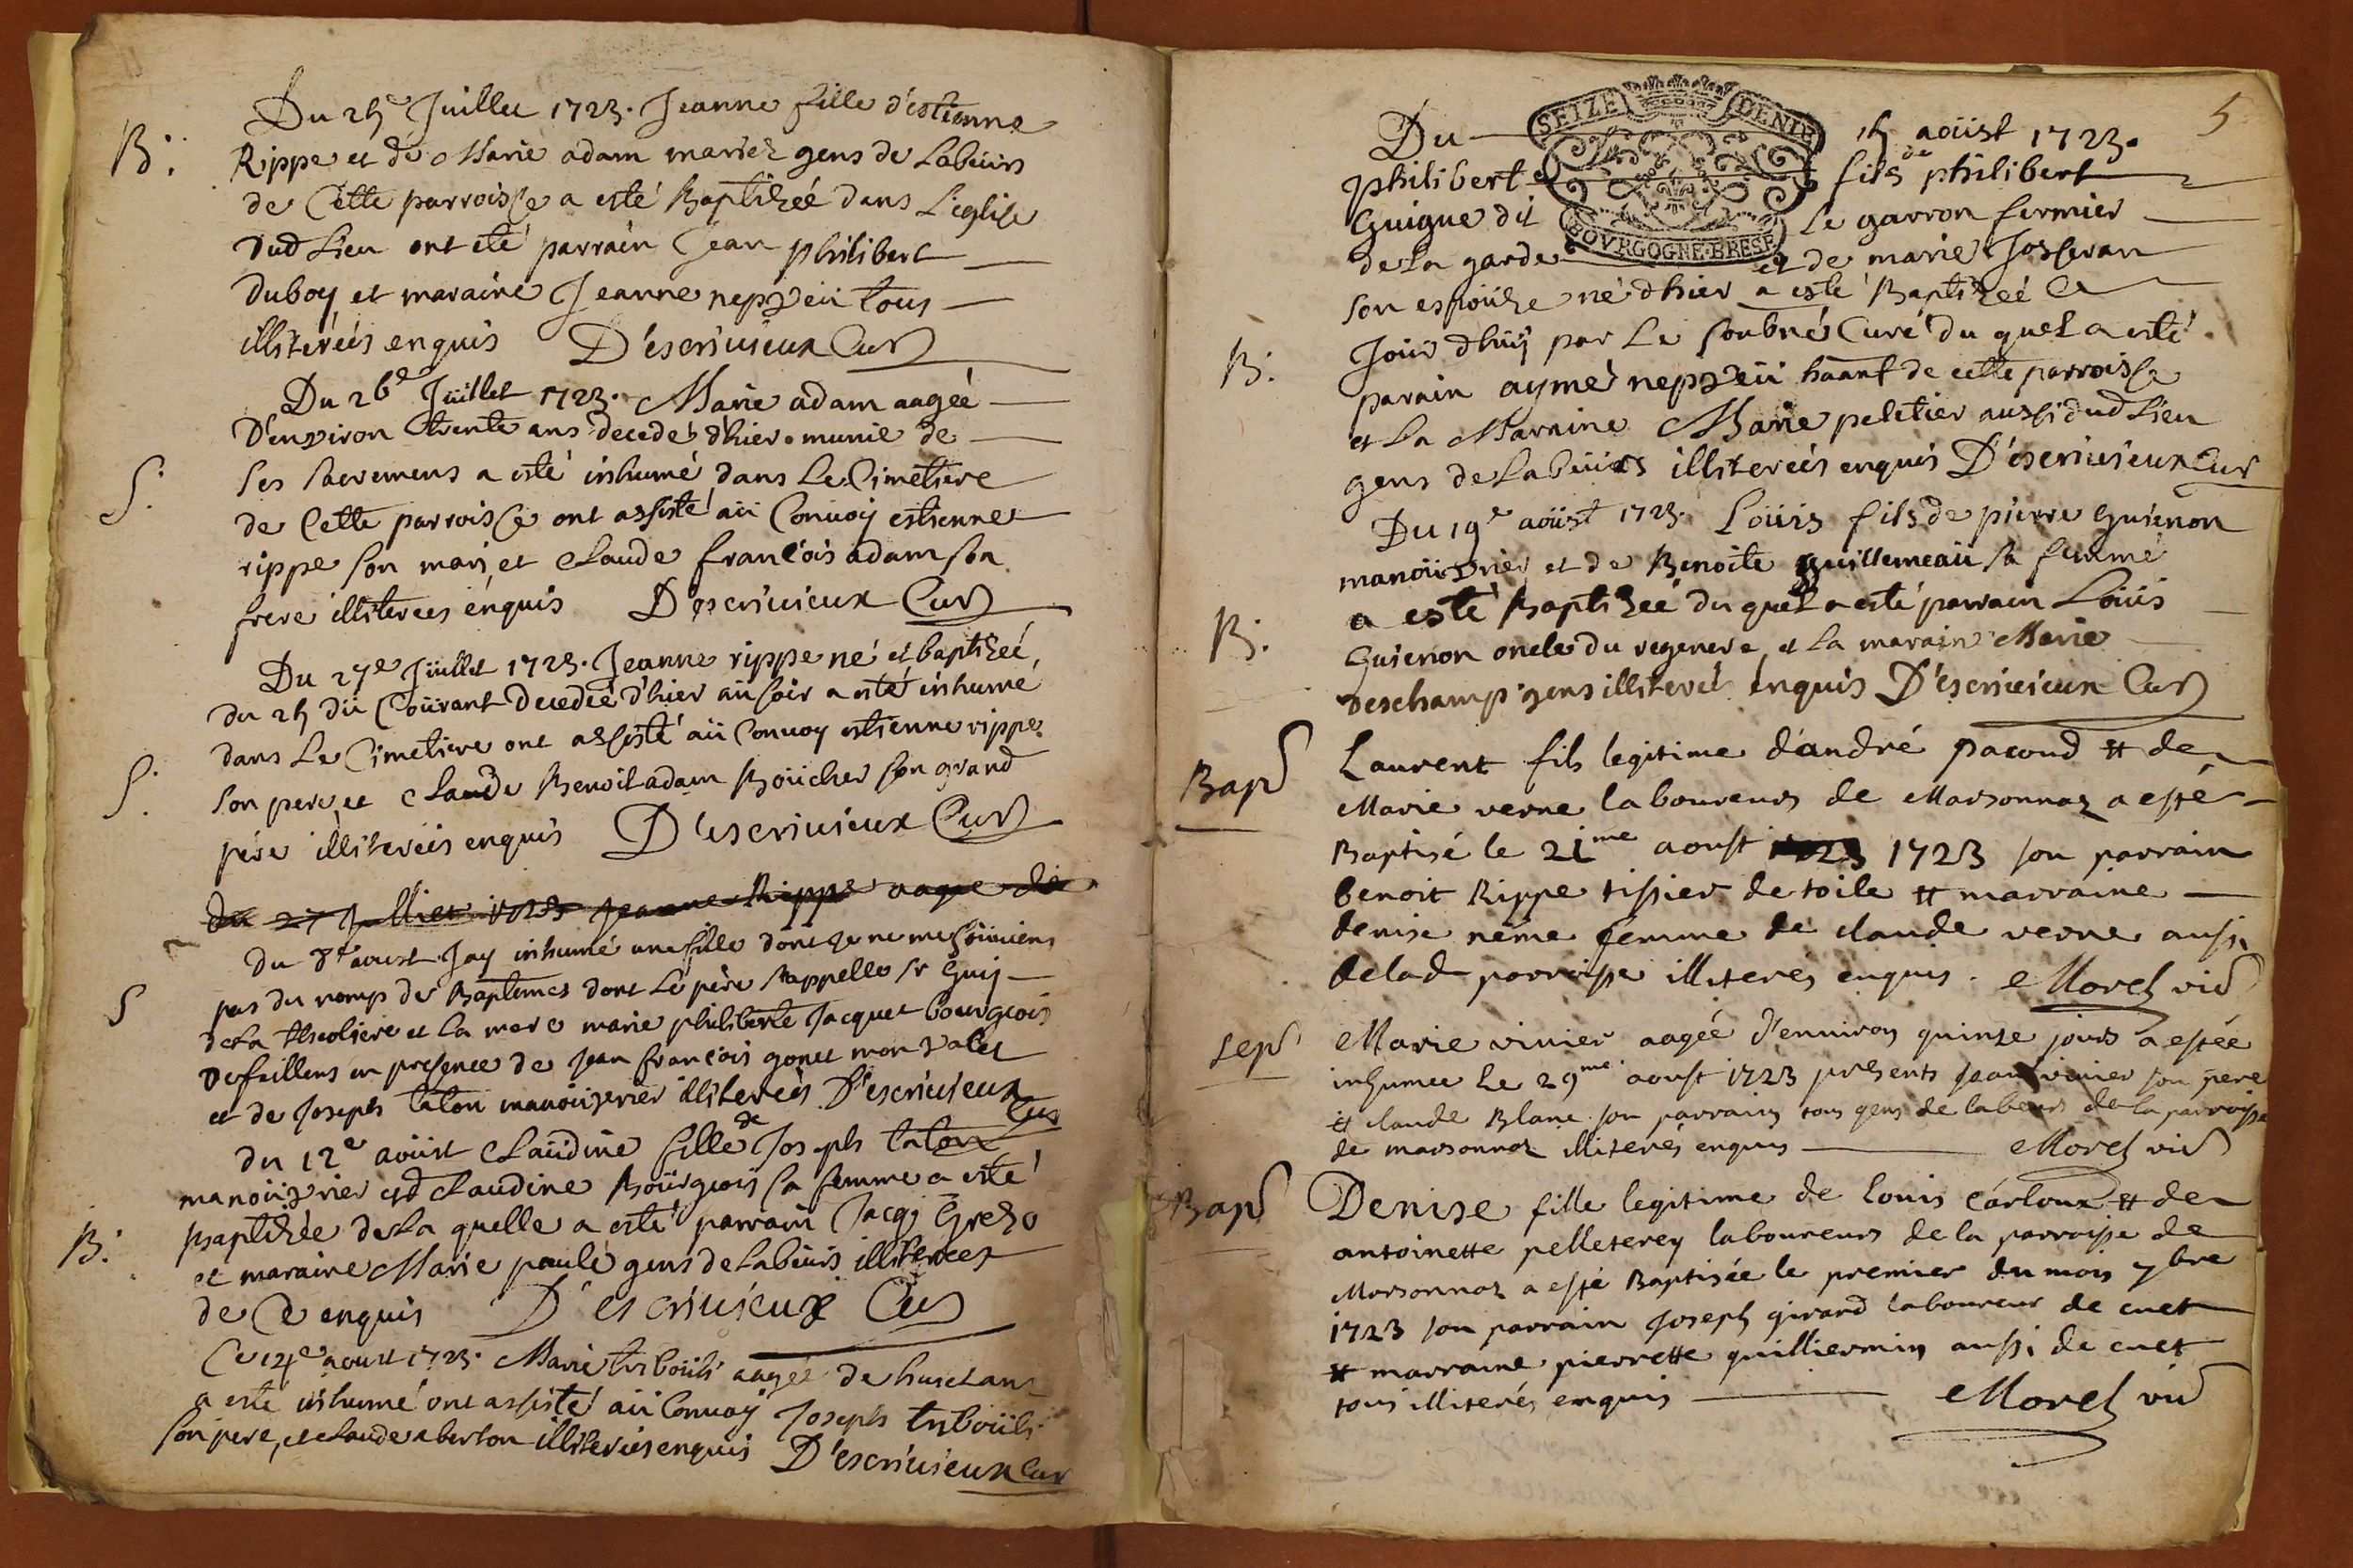 B.
Du 25e Juillet 1723. Jeanne fille d'estienne
Rippe et de Marie adam mariez gens de Labeurs
de Cette parroisse a esté Baptizéé dans L'eglise
dud Lieu ont eté parrain Jean philibert
duboy et maraine Jeanne nepveü tous
illiteréés enquis D'escriuieux Cur
S.
Du 26e Juillet 1723. Marie adam aagéé
D'environ trente ans decedéé d'hier munie de
ses sacremens a esté inhumé dans Le Cimetiere
de Cette parroisse ont assisté aü Conuoy estienne
rippe son mari et Claude francois adam son
frere illiterees enquis D'escriuieux Cur
S.
Du 27e Juillet 1723. Jeanne rippe né et baptizéé
du 25 dü Coürant decedéé d'hier aü soir a esté inhumé
dans Le Cimetiere ont assisté aü Conuoy estienne rippe
son pere et Claude Benoit adam Boücher son grand
pére illiteréés enquis D'escriuieux Cur
du 27 Juillet 1723 Jeanne Rippe aagee de
S
du 8e aoust Jay inhumé une fille dont je ne me soüuiens
pas du nomp de Baptemes dont Le pére s'appelle sr Guij
de La et la mere marie philiberte Jacquet bourgeois
defaillens en presence de Jean francois gonet mon valet
et de Joseph talon manoüvrier illiteréés D'escriuieux
Cur
B.
du 12e aoüst Claüdine fille de Joseph talon
manoüvrier et d Claudine Boürgeois sa femme a esté
baptizéé de La quelle a esté parrain Jacq;
et maraine Marie paule gens de Labeurs illiterees
de Ce enquis D'escriuieux Cur
Ce 14e aoust 1723. Marie triboüli aagéé de huict ans
a esté inhumé ont assisté aü Conuoy Joseph triboüli
son pere, et Claude aberton illiteréés enquis D'escriuieux Cur
5
SEIZE DENIE
BOVRGOGNE·BRESE
Du 15 aoüst 1723.
philibert fils de philibert
Guigue dit Le garron fermier
de La garde et de marie Josseran
son espoüze né d'hier a esté Baptizéé Ce
B.
Joür d'huij par Le soubné Curé du quel a esté
parain aymé nepveü haant de cette parroisse
et La Maraine Marie peletier aussi dud Lieu
gens de Labeürs illiteréés enquis D'escriuieux Cur
Du 19e aoüst 1723. Loüis fils de pierre Guienon
manoüvrier et de Benoite guillemeaü sa femme
B.
a esté Baptizéé du quel a esté parrain Loüis
Guienon oncle du regenere, et La marain Marie
deschamp gens illiteré enquis D'escriuieux Cur
Bap
Laurent fils legitime d'andré pacoud et de
Marie verne laboureurs de Marsonnaz a esté
Baptisé le 21me aoust 1723 1723 son parrain
benoit Rippe tissier de toile et marraine
denise néme femme de claude verne aussi
de lad parroisse illiterés enquis. Morel vic
sep
Marie vivier aagéé d'environ quinze jours a estéé
inhumee le 29me aoust 1723 presents Jean vivier son pere
et claude Blanc son parrain tous gens de labeur de la parroisse
de marsonnaz illiterés enquis Morel vic
Bap
Denise fille legitime de louis carloux et de
antoinette pelleterey laboureurs de la parroisse de
Marsonnaz a esté Baptisée le premier du mois 7bre
1723 son parrain Joseph girard laboureur de cuet
et marraine pierrette guilliermin aussi de cuet
tous illiterés enquis Morel vic